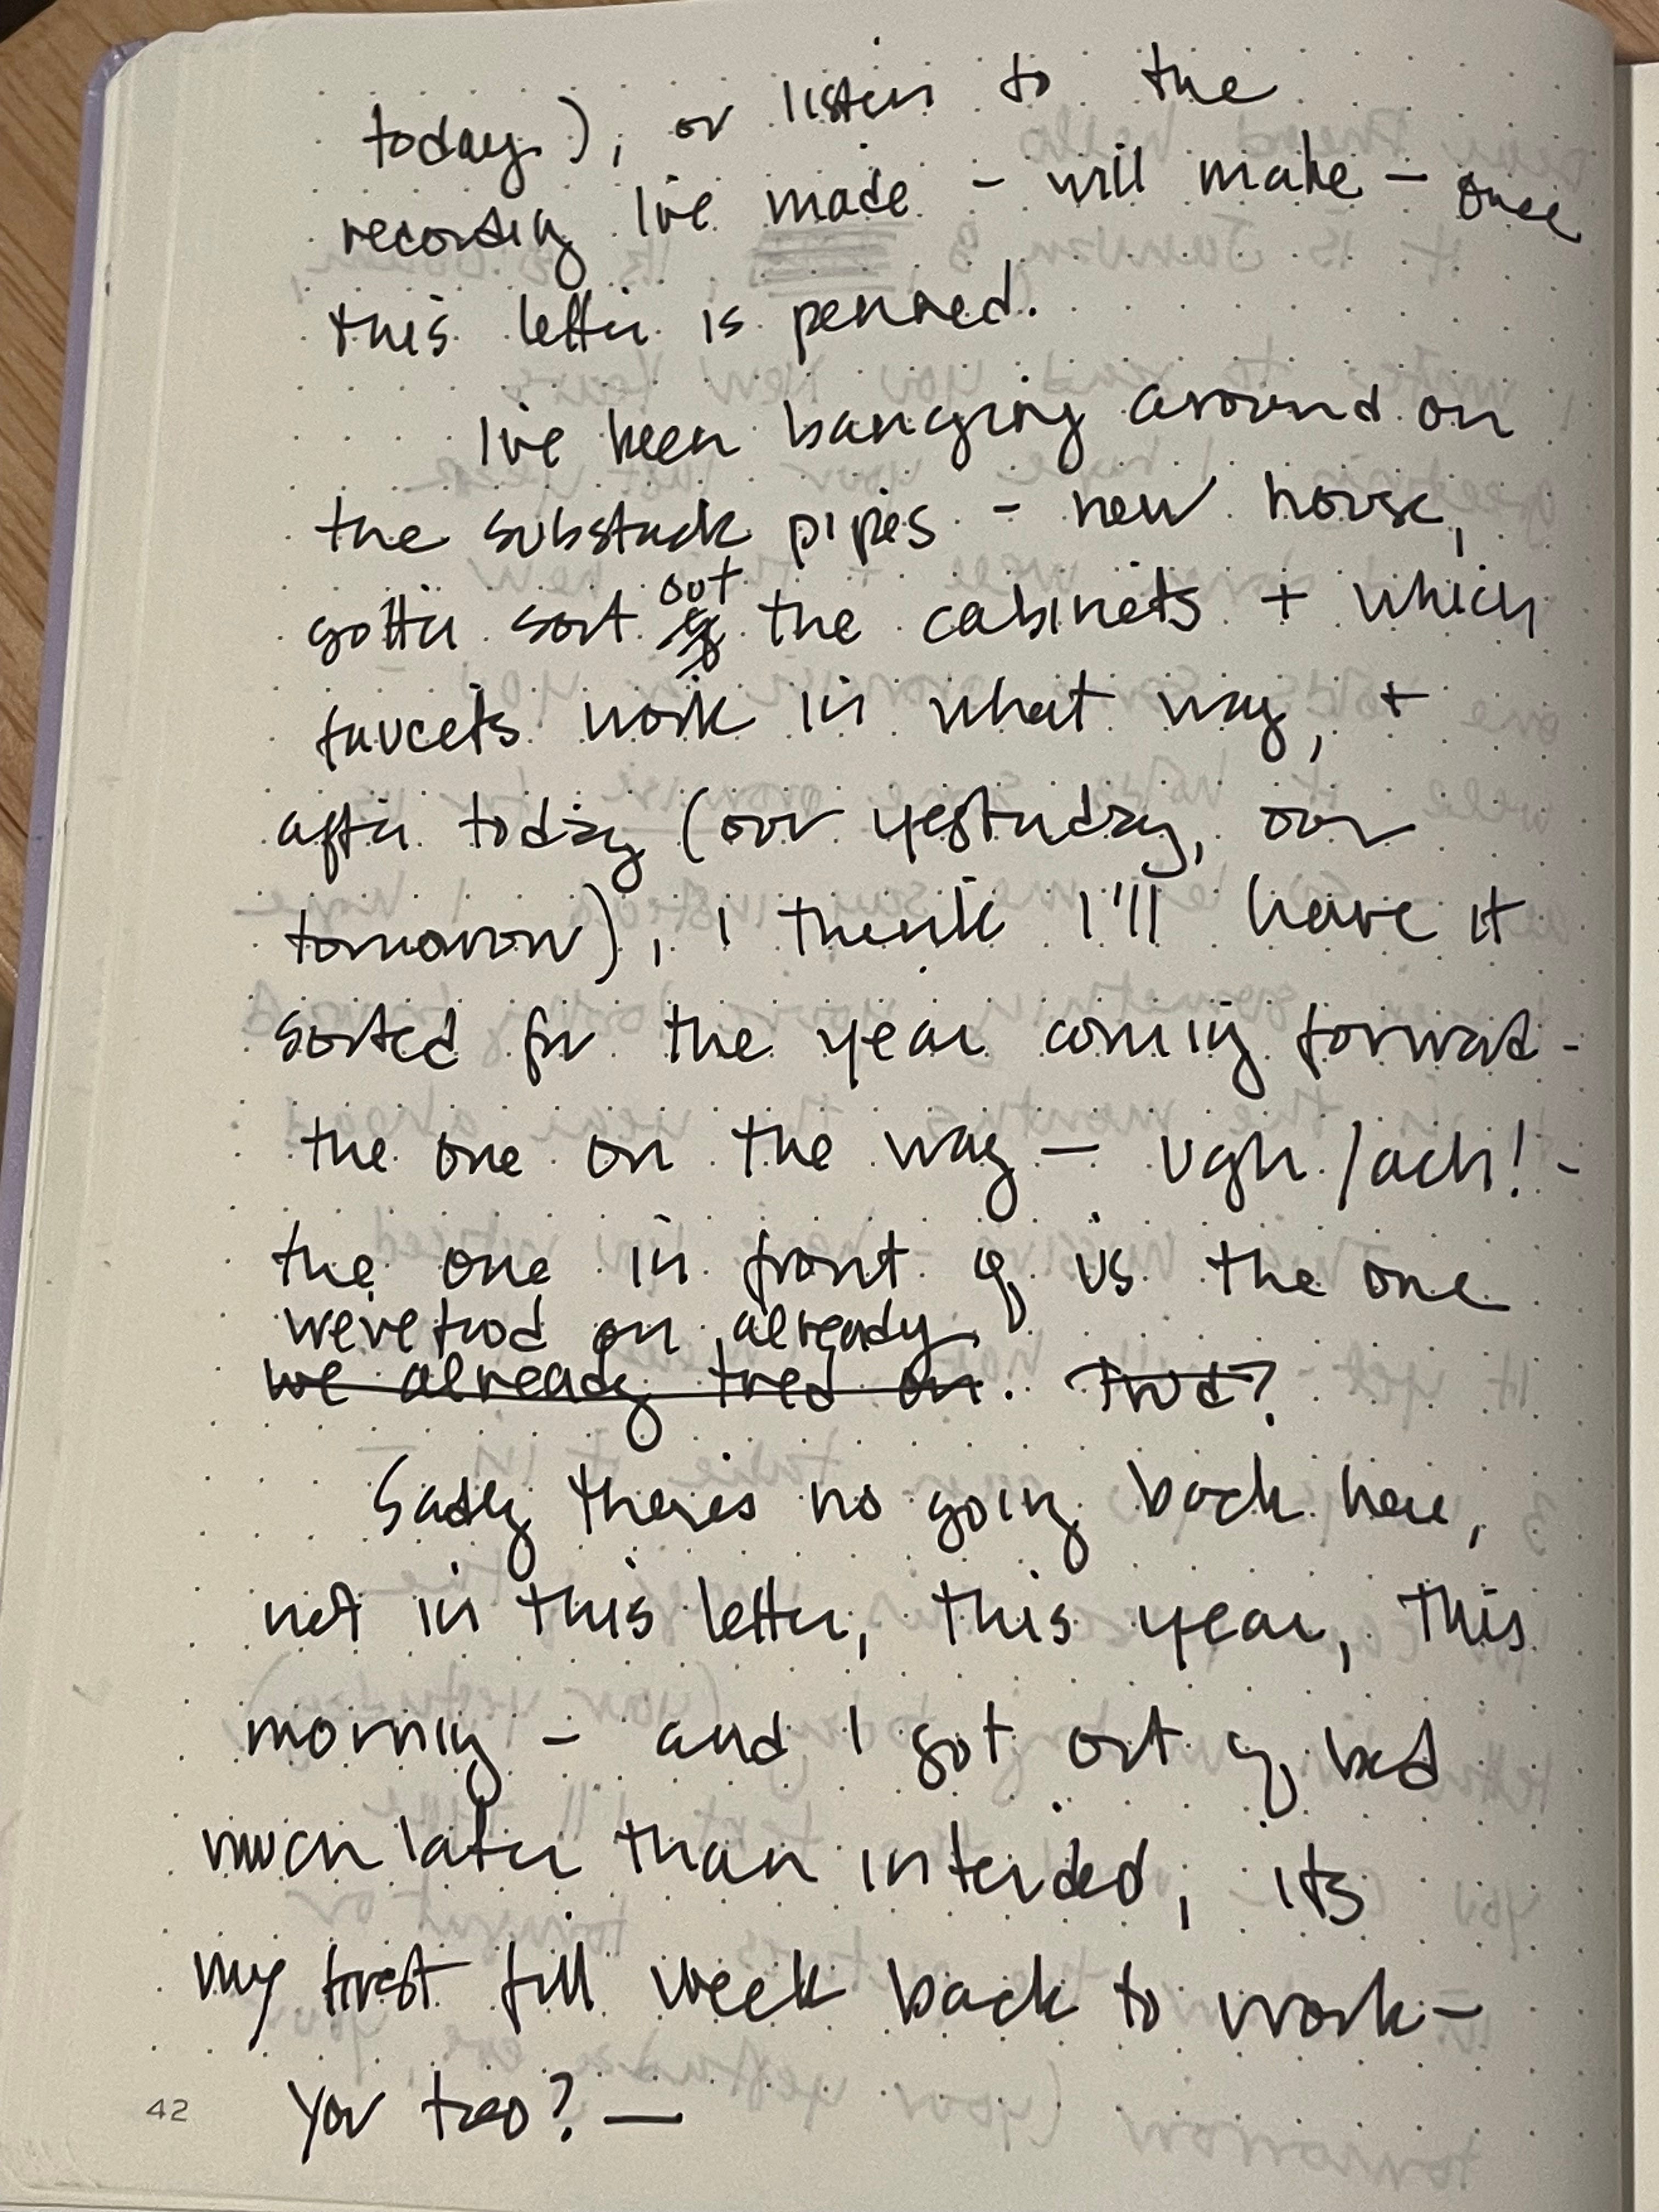 today), or listen to the
recording I've made - will make - once
this letter is penned.
I've been banging around on
the substack pipes - new house,
gotta sort out the cabinets + which
faucets work in what way, +
after today (our yesterday, our
tomorrow), I think I'll have it
sorted for the year coming forward -
the one on the way - ugh/ach! -
the one in front of us the one
we've trod on already
we already tred on. Trod?
Sadly there's no going back here,
not in this letter, this year, this
morning - and I got out of bed
much later than intended, its
my first full week back to work -
you too? —
42